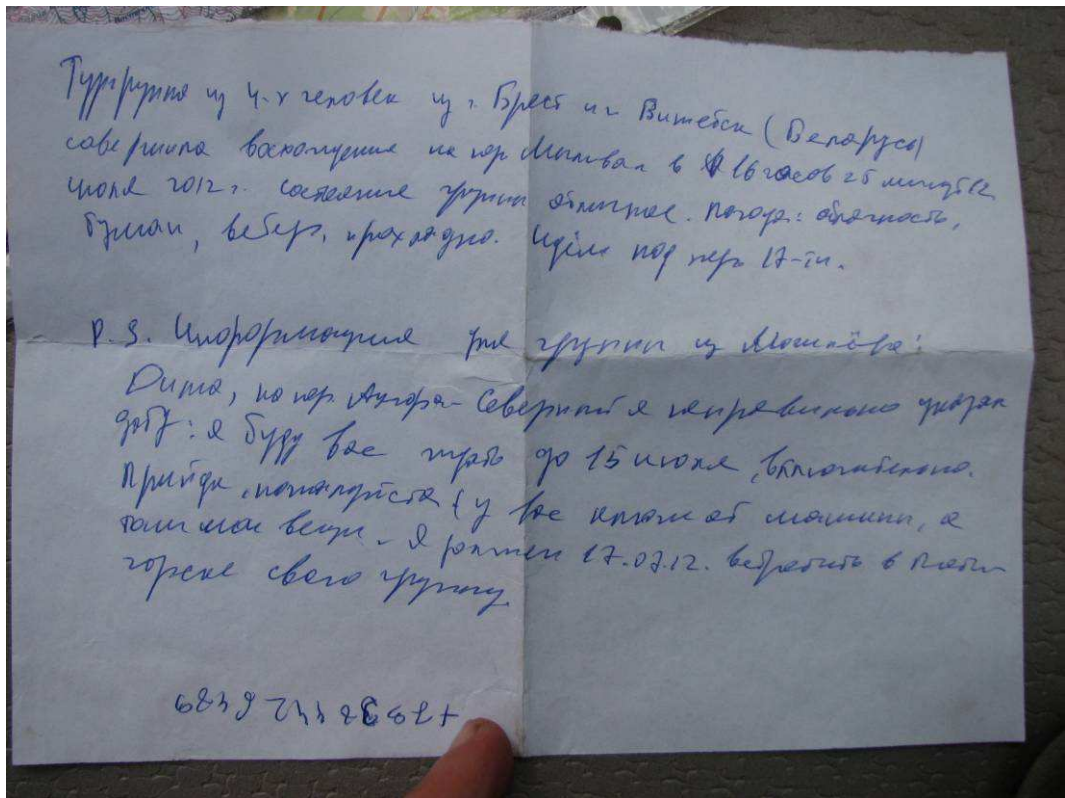 Тургруппа из 4-х человек из г. Брест и г. Витебск (Беларусь)
совершила восхождение на пер. в 16 часов 25 минут 12
июля 2012 г. состояние группы отличное. Погода: облачность,
туман, ветер, прохладно. Идём под пер. 17-ти.
P.S. Информация для группы из Могилёва:
Дима, на пер. Аугора-Северный я неправильно указал
дату: я буду вас ждать до 15 июля, включительно.
Прийди, пожалуйста (у вас ключ от машины, а
там мои вещи. Я должен 17.07.12. встретить в Пяти-
горске свою группу.